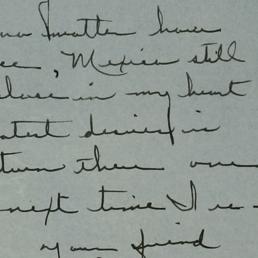 no matter how
, Mexico still
close in my heart
atest desires is
turn there one
next time I re-
your friend